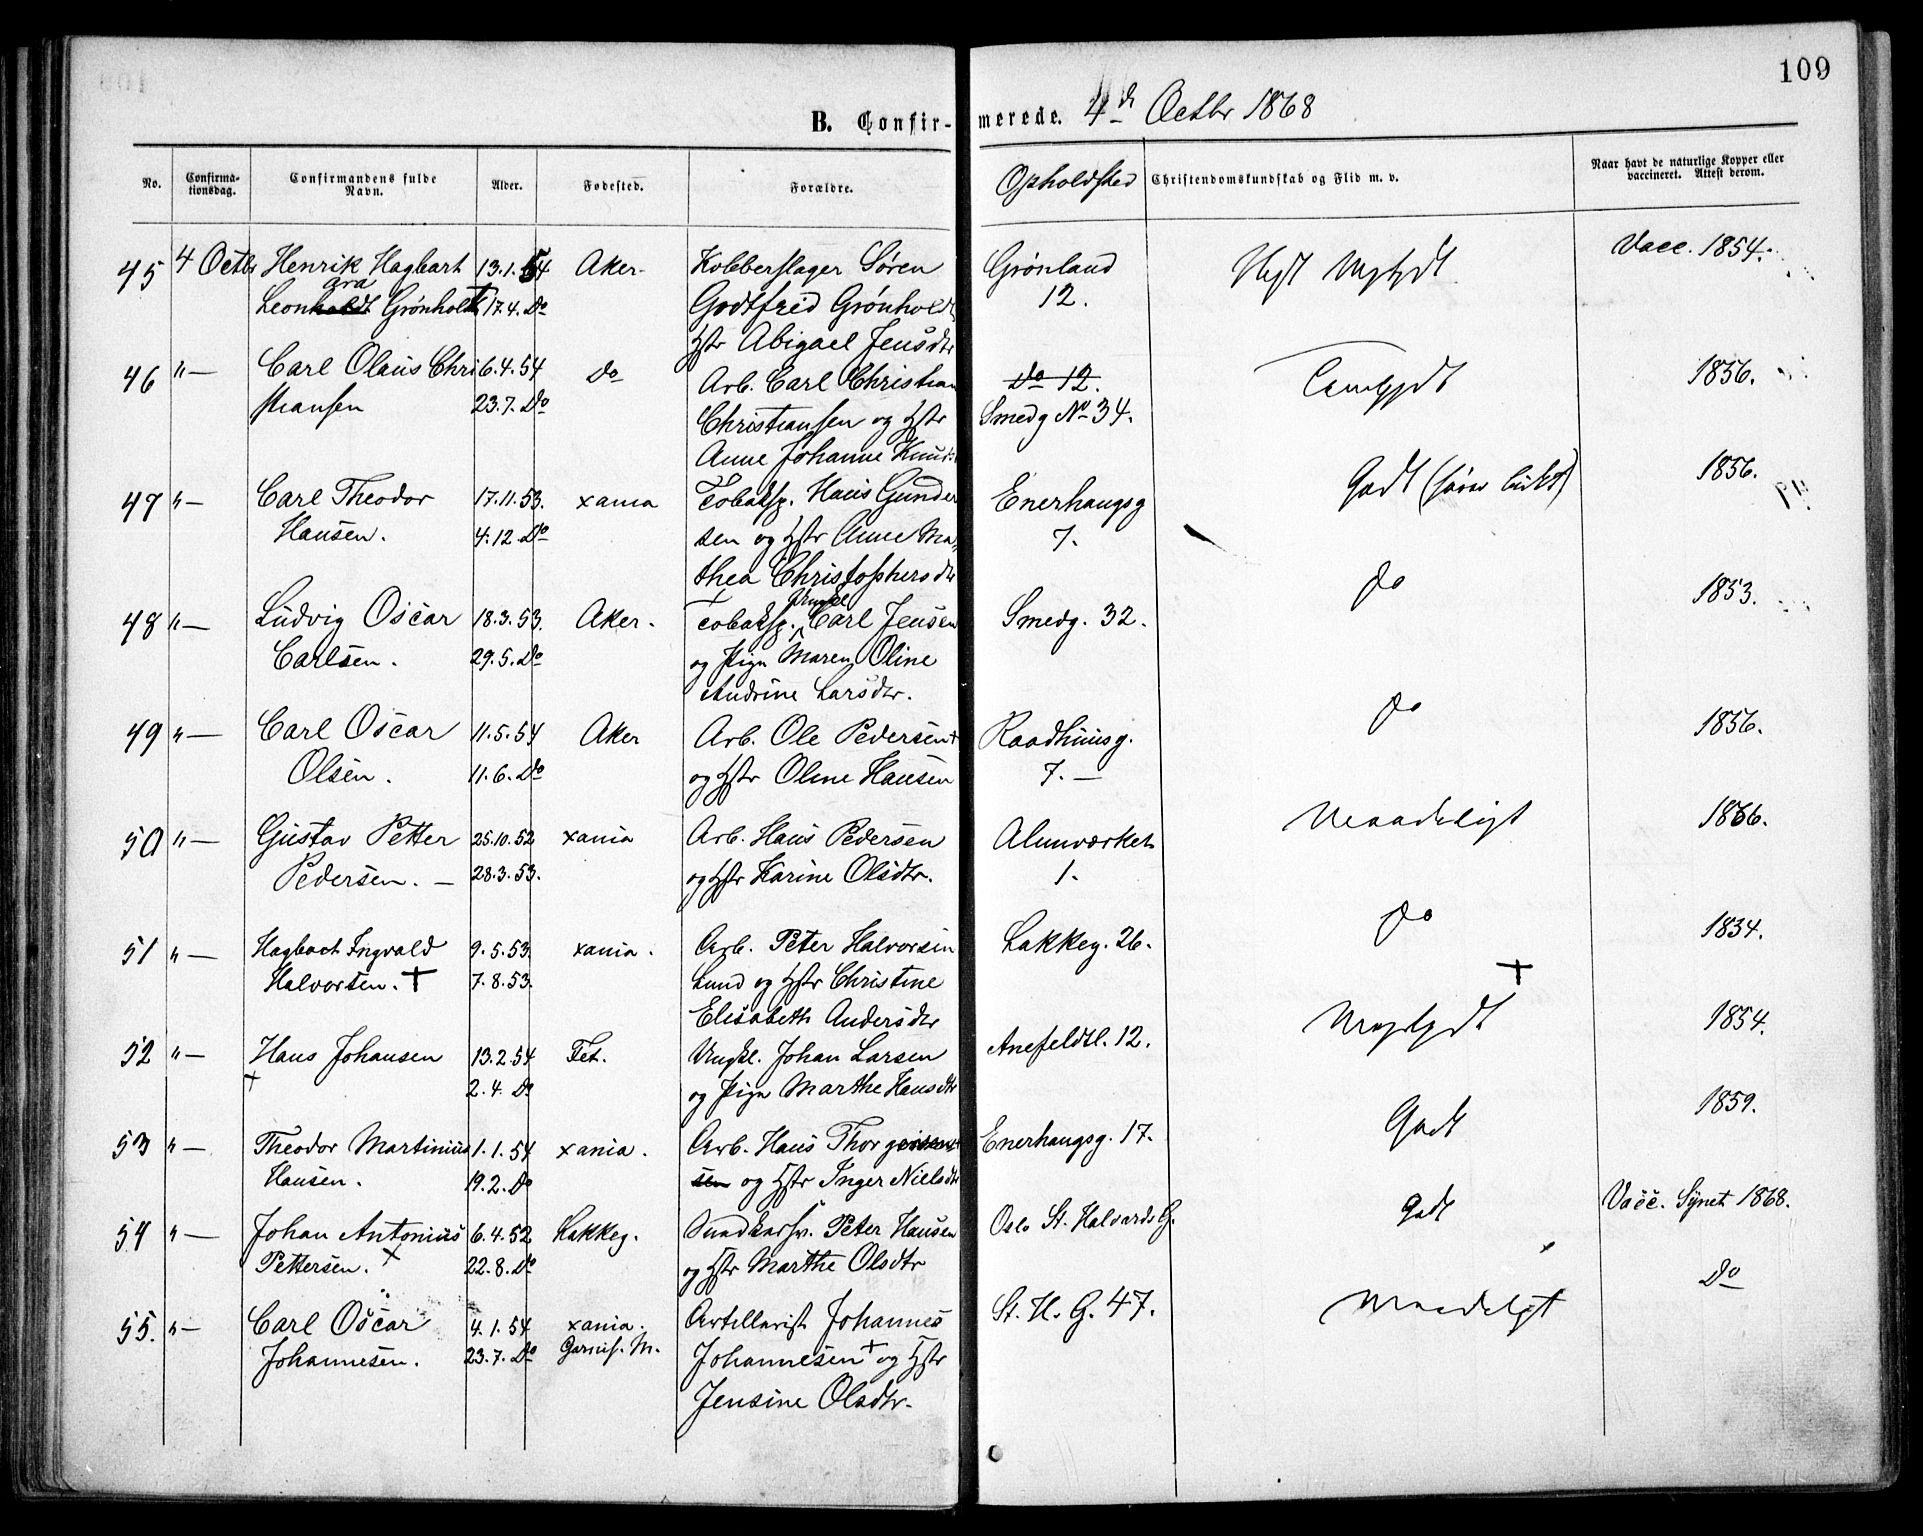 109
B. Confir- merede. 4d Octbr 1868
No.
Confirma-
tionsdag.
Confirmandens fulde
Navn.
Alder.
Fødested.
Forældre.
Opholdsted
Christendomskundskab og Flid m. v.
Naar havt de naturlige Kopper eller
vaccineret. Attest derom.
45 4 Octbr Henrik Hagbart 13.1.54 Aker. Kobberslager Søren Grønland Vacc. 1854.
ara
Leonhaldt Grønholdt 17.4. Do Godtfred Grønholdt 12.
Hstr Abigael Jensdtr
46 "— Carl Olaus Chri 6.4.54 Do Arb. Carl Christian Do 12. 1856.
stiansen 23.7. Do Christiansen og Hstr Smedg No 34.
Anne Johanne Knuds
47 "— Carl Theodor 17.11.53. xania Tobaksp. Hans Gunder Enerhaugsg Godt 1856.
Hansen. 4.12. Do sen og Hstr Anne Ma 7.
thea Christophersdtr
48 "— Ludvig Oscar 18.3.53. Aker. Tobaksp. Carl Jensen Smedg. 32. do 1853.
Carlsen. 29.5. Do og Pign Maren Oline
Andrine Larsdtr.
49 "— Carl Oscar 11.5.54 Aker Arb. Ole Pedersen+ Raadhuusg. do 1856.
Olsen. 11.6. Do og Hstr Oline Hansen 7. —
50 "— Gustav Petter 25.10.52 xania Arb. Hans Pedersen Alunværket Maadeligt 1866.
Pedersen. — 28.3.53. og Hstr Karine Olsdtr. 1.
51 "— Hagbart Ingvald 9.5.53. xania. Arb. Peter Halvorsen Lakkeg. 26. do 1834.
Halvorsen. + 7.8.53. Lund og Hstr Christine +
Elisabeth Andersdtr
52 "— Hans Johansen 13.2.54 Fet. Ungkl. Johan Larsen Anefeldtl. 12. Megetgodt 1854.
+ 2.4. Do og Pign Marthe Hansdtr
53 "— Theodor Martinius 1.1.54 xania. Arb. Hans Thorgersen Enerhaugsg. 17. Godt 1859.
Hansen. 19.2. Do sen og Hstr Inger Nielsdtr
54 "— Johan Antonius 6.4.52 Lakkeg. Peter Hansen Oslo St. Halvards G. Godt Vacc. Synet 1868.
Pettersen. + 22.8. Do og Hstr Marthe Olsdtr
55. "— Carl Oscar 4.1.54 xania. Artillerist Johannes St. H. G. 47. Maadeligt Do
Johannesen. 23.7. Do Garnis. M. Johannesen+ og Hstr
Jensine Olsdtr.